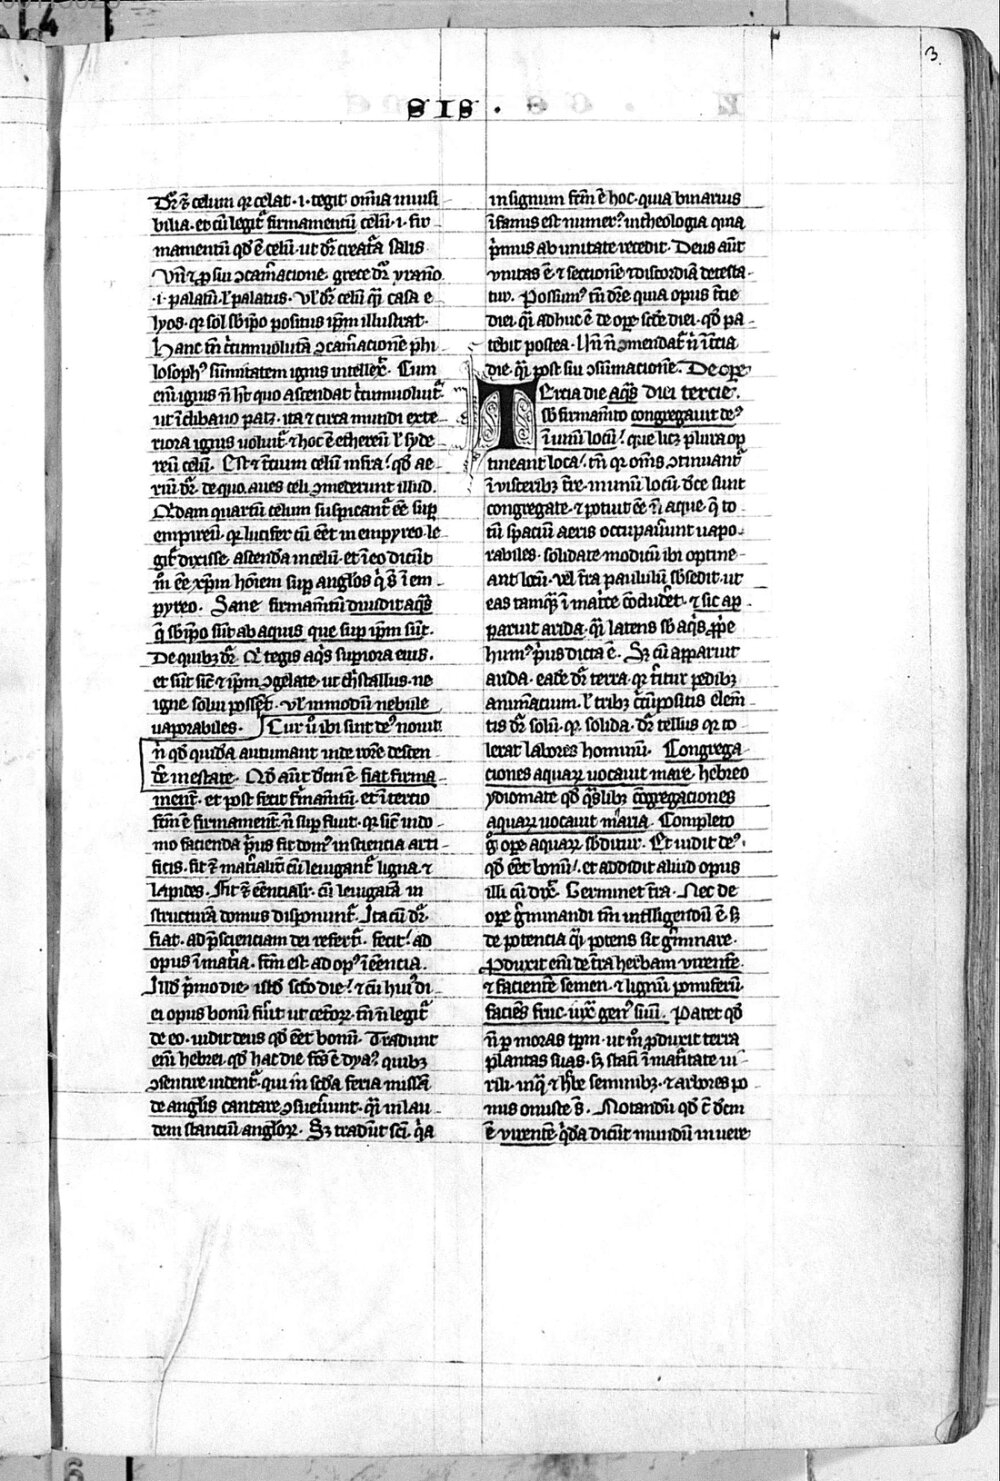 3
SIS.
Dr̃ ⁊̃ celum qr celat ·i· tegit om̃ia inuisi
bilia· et cũ legit᷑ firmamentũ celũ ·i· fir
mamentũ qđ ẽ celũ· ut dr̃ creat᷑a salis·
Vñ ⁊ ꝓ sui ꝯcam̃acione· grece dr̃ yrãno
·i· palatũ· ł palatus· Vł dr̃ celũ q̃i casa e
lyos· qr sol sb̃ ip̃o positus ip̃m illustrat·
Hanc tñ circũuolutã ꝯcam̃acione ph̃i
losophꝰ sũm̃itatem ignis intellex̃· Cum
em̃ ignis ñ ht̃ quo ascendat circũuoluit᷑
ut ĩ clibano patꝫ· ita ⁊ circa mundi exte
riora ignis uoluit᷑· ⁊ hoc ẽ ethereũ ł syde
reũ celũ· Est ⁊ t̃cium celũ infra· qđ ae
riũ dr̃· de quo· aues celi ꝯmederunt illud·
Q̃dam quartũ celum suspicant᷑ ẽe sup̃
empireũ· qr lucifer cũ eẽt in empyreo le
git᷑ dixisse· ascendã in celũ· et ĩ eo dicũt
m̃ ẽe xp̃m hõiem sup anglos q̃ sñ ĩ em
pyreo· Sane firmam̃tũ diuidit aq̃s
q̃ sb̃ ip̃o sũt ab aquis que sup ip̃m sũt·
De quibꝫ dr̃· Q̃ tegis aq̃s sup̃iora eius·
et sũt sic̃ ⁊ ip̃m ꝯgelate· ut cristallus· ne
igne solui possẽt· vł in modũ nebule
uaporabiles· Cur ũ ibi sint deꝰ nouit·
ñ qđ quidã autumant inde rore descen
de in estate· Qđ aũt dc̃m ẽ fiat firma
ment̃· et post fecit fir̃mam̃tũ· et ĩ tercio
fc̃m ẽ firmament̃ ñ supfluit· qr sic̃ in do
mo facienda pͥus fit domꝰ in sciencia arti
ficis· fit ⁊̃ mat̃ialit̃ cũ leuigant᷑ ligna ⁊
lapides· Fit ⁊̃ eẽncialit̃· cũ leuigata in
structurã domus disponunt᷑· Ita cũ dr̃·
fiat· ad p̃scienciam dei refert᷑· fecit· ad
opus ĩ mat̃ia· fc̃m est· ad opꝰ ĩ eẽncia·
Illđ pͥmo die· istđ scđo die· ⁊ cũ huiꝰ di
ei opus bonũ fu̾it ut cet̃oꝝ· tñ ñ legit᷑
de eo· uidit deus qđ eẽt bonũ· Tradunt
em̃ hebrei· qđ hac die fc̃s ẽ dyaꝰ quibꝫ
ꝯsentire uident᷑· qui in scđa feria missã
de anglis cantare ꝯsueu̾unt· q̃i in lau
dem stanciũ angloꝝ· Sꝫ tradũt sc̃i· q̃a
in signum fc̃m ẽ hoc· quia binarius
ĩfamis est numerꝰ in theologia quia
pͥmus ab unitate recedit· Deus aũt
vnitas ẽ ⁊ sectionẽ ⁊ discordiã detesta
tur· Possumꝰ tñ dr̃e quia opus t̃cie
diei· q̃i adhuc ẽ de ope scđe diei· qđ pa
tebit postea· Uñ ñ ꝯmendat᷑ ñ ĩ t̃cia
die· q̃i post sui ꝯsũmacionẽ· De ope
diei tercie·
Tercia die aq̃s
sb̃ firmam̃to congregauit deꝰ
ĩ unũ locũ· que licꝫ plura op
tineant loca· tñ qr om̃s ꝯtinuant᷑
ĩ uisceribꝫ t̃re· in unũ locũ dc̃e sunt
congregate· ⁊ potuit ẽe ñ aque· q̃ to
tũ spaciũ aeris occupau̾unt uapo
rabiles· solidate modicũ ibi optine
ant locũ· vel t̃ra paululũ sb̃sedit· ut
eas tamq̃ ĩ matͥce ꝯcludet̃· ⁊ sic ap
paruit arida· q̃i latens sb̃ aq̃s ꝓpe
humꝰ pͥus dicta ẽ· Sꝫ cũ apparuit
arida· eadẽ dr̃ terra· qr t̃itur pedibꝫ
animãtium· ł tribꝫ circũpositis elem̃
tis dr̃ solũ· qr solida· dr̃ tellus qr to
lerat labores hominũ· Congrega
ciones aquaꝝ uocauit mare· hebreo
ydiomate qđ q̃slibꝫ ꝯgregaciones
aquaꝝ uocauit maria· Completo
g̊ ope aquaꝝ sb̃ditur· Et uidit deꝰ·
qđ eẽt bonũ· et addidit aliud opus
illi cũ dix̃· Germinet t̃ra· Nec de
ope g̃minandi tm̃ intelligendũ ẽ sꝫ
de potencia q̃i potens sit g̃minare·
Produxit em̃ de t̃ra herbam virentẽ
⁊ facientẽ semen· ⁊ lignũ pomiferũ
faciẽs fruc̃ iux̃ genꝰ suũ· Patet qđ
ñ ꝑ moras tꝑm· ut m̃ ꝓduxit terra
plantas suas· sꝫ statĩ ĩ maturitate ui
rili· in qͣ ⁊ h̃be seminibꝫ· ⁊ arbores po
mis onuste s̃· Notandũ qđ t̃ dc̃m
ẽ virentẽ q̃dã dicũt mundũ in uere